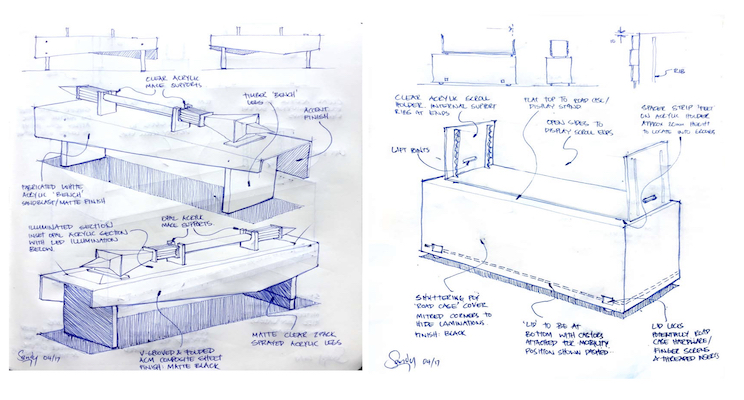 CLEAR ACRYLIC
MACE SUPPORTS
TIMBER 'BENCH'
LEGS
ACCENT
FINISH
FABRICATED WHITE
ACRYLIC 'BENCH'
SANDBLAST/MATTE FINISH
ILLUMINATED SECTION
INSET OPAL ACRYLIC SECTION
WITH LED ILLUMINATION
BELOW.
OPAL ACRYLIC
MACE SUPPORTS.
V-GROOVED & FOLDED
ACM COMPOSITE EFFECT
FINISH: MATTE BLACK
MATTE CLEAR 2 PACK
SPRAYED ACRYLIC LEGS.
04/17
RIB
CLEAR ACRYLIC SCROLL
HOLDER INTERNAL SUPPORT
RIBS AT ENDS
FLAT TOP TO ROAD CASE/
DISPLAY STAND
OPEN SIDES TO
DISPLAY SCROLL ENDS
SPACER STRIP 'FEET'
ON ACRYLIC HOLDER
APPROX 12mm HEIGHT
TO LOCATE INTO GROOVES
LIFT POINTS
SHUTTERING PLY
'ROAD CASE' COVER
MITRED CORNERS TO
HIDE LAMINATIONS
FINISH: BLACK
'LID' TO BE AT
BOTTOM WITH CASTORS
ATTACHED FOR MOBILITY
POSITION SHOWN DASHED
LID LOCKS
POTENTIALLY ROAD
CASE HARDWARE/
FINGER SCREWS
& THREADED INSERTS
04/17